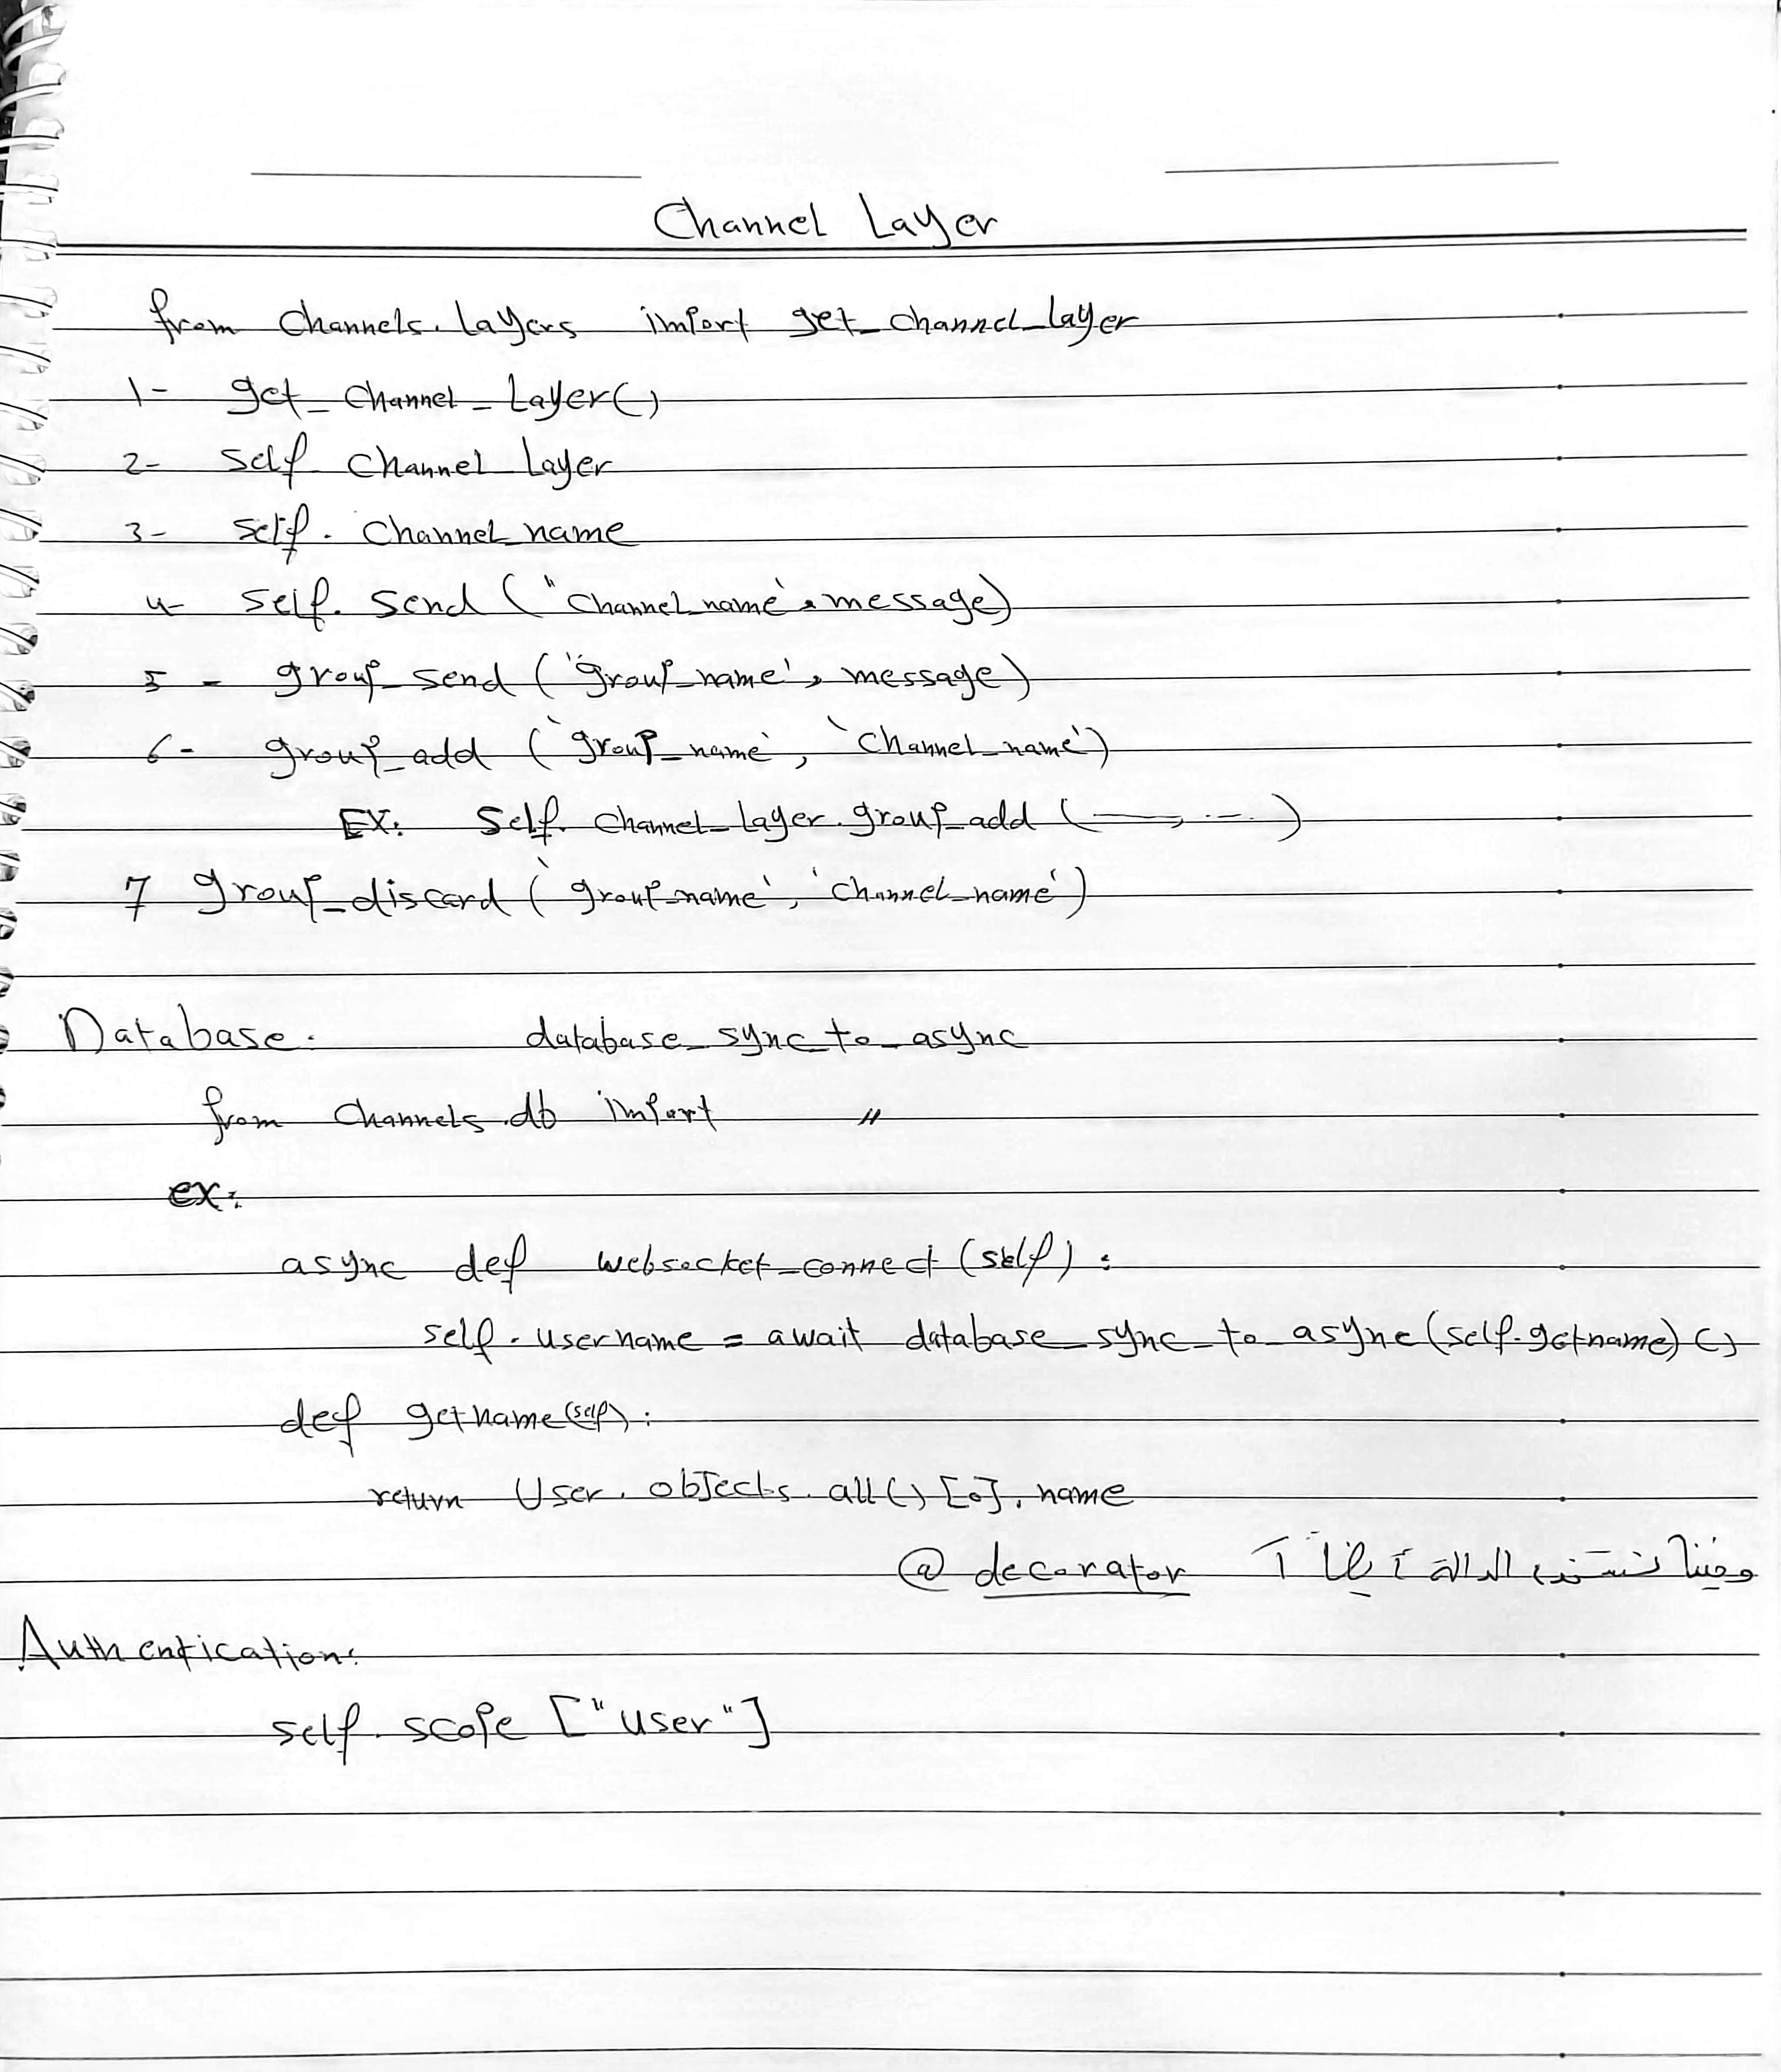 Channel Layer
from channels.layers import get_channel_layer
1- get_channel_layer()
2- self channel_layer
3- self.channel_name
4- self.send("channel_name', message)
5- group_send('group_name', message)
6- group_add('group_name', 'channel_name')
EX: self.channel_layer.group_add(——, ---)
7 group_discard('group_name', 'channel_name')
Database: database_sync_to_async
from channels.db import "
ex:
async def websocket_connect(self):
self.username = await database_sync_to_async(self.getname)()
def getname(self):
return User.objects.all()[0].name
وفينا نستخدم الدالة أيضاً @decorator
Authentication:
self.scope["user"]